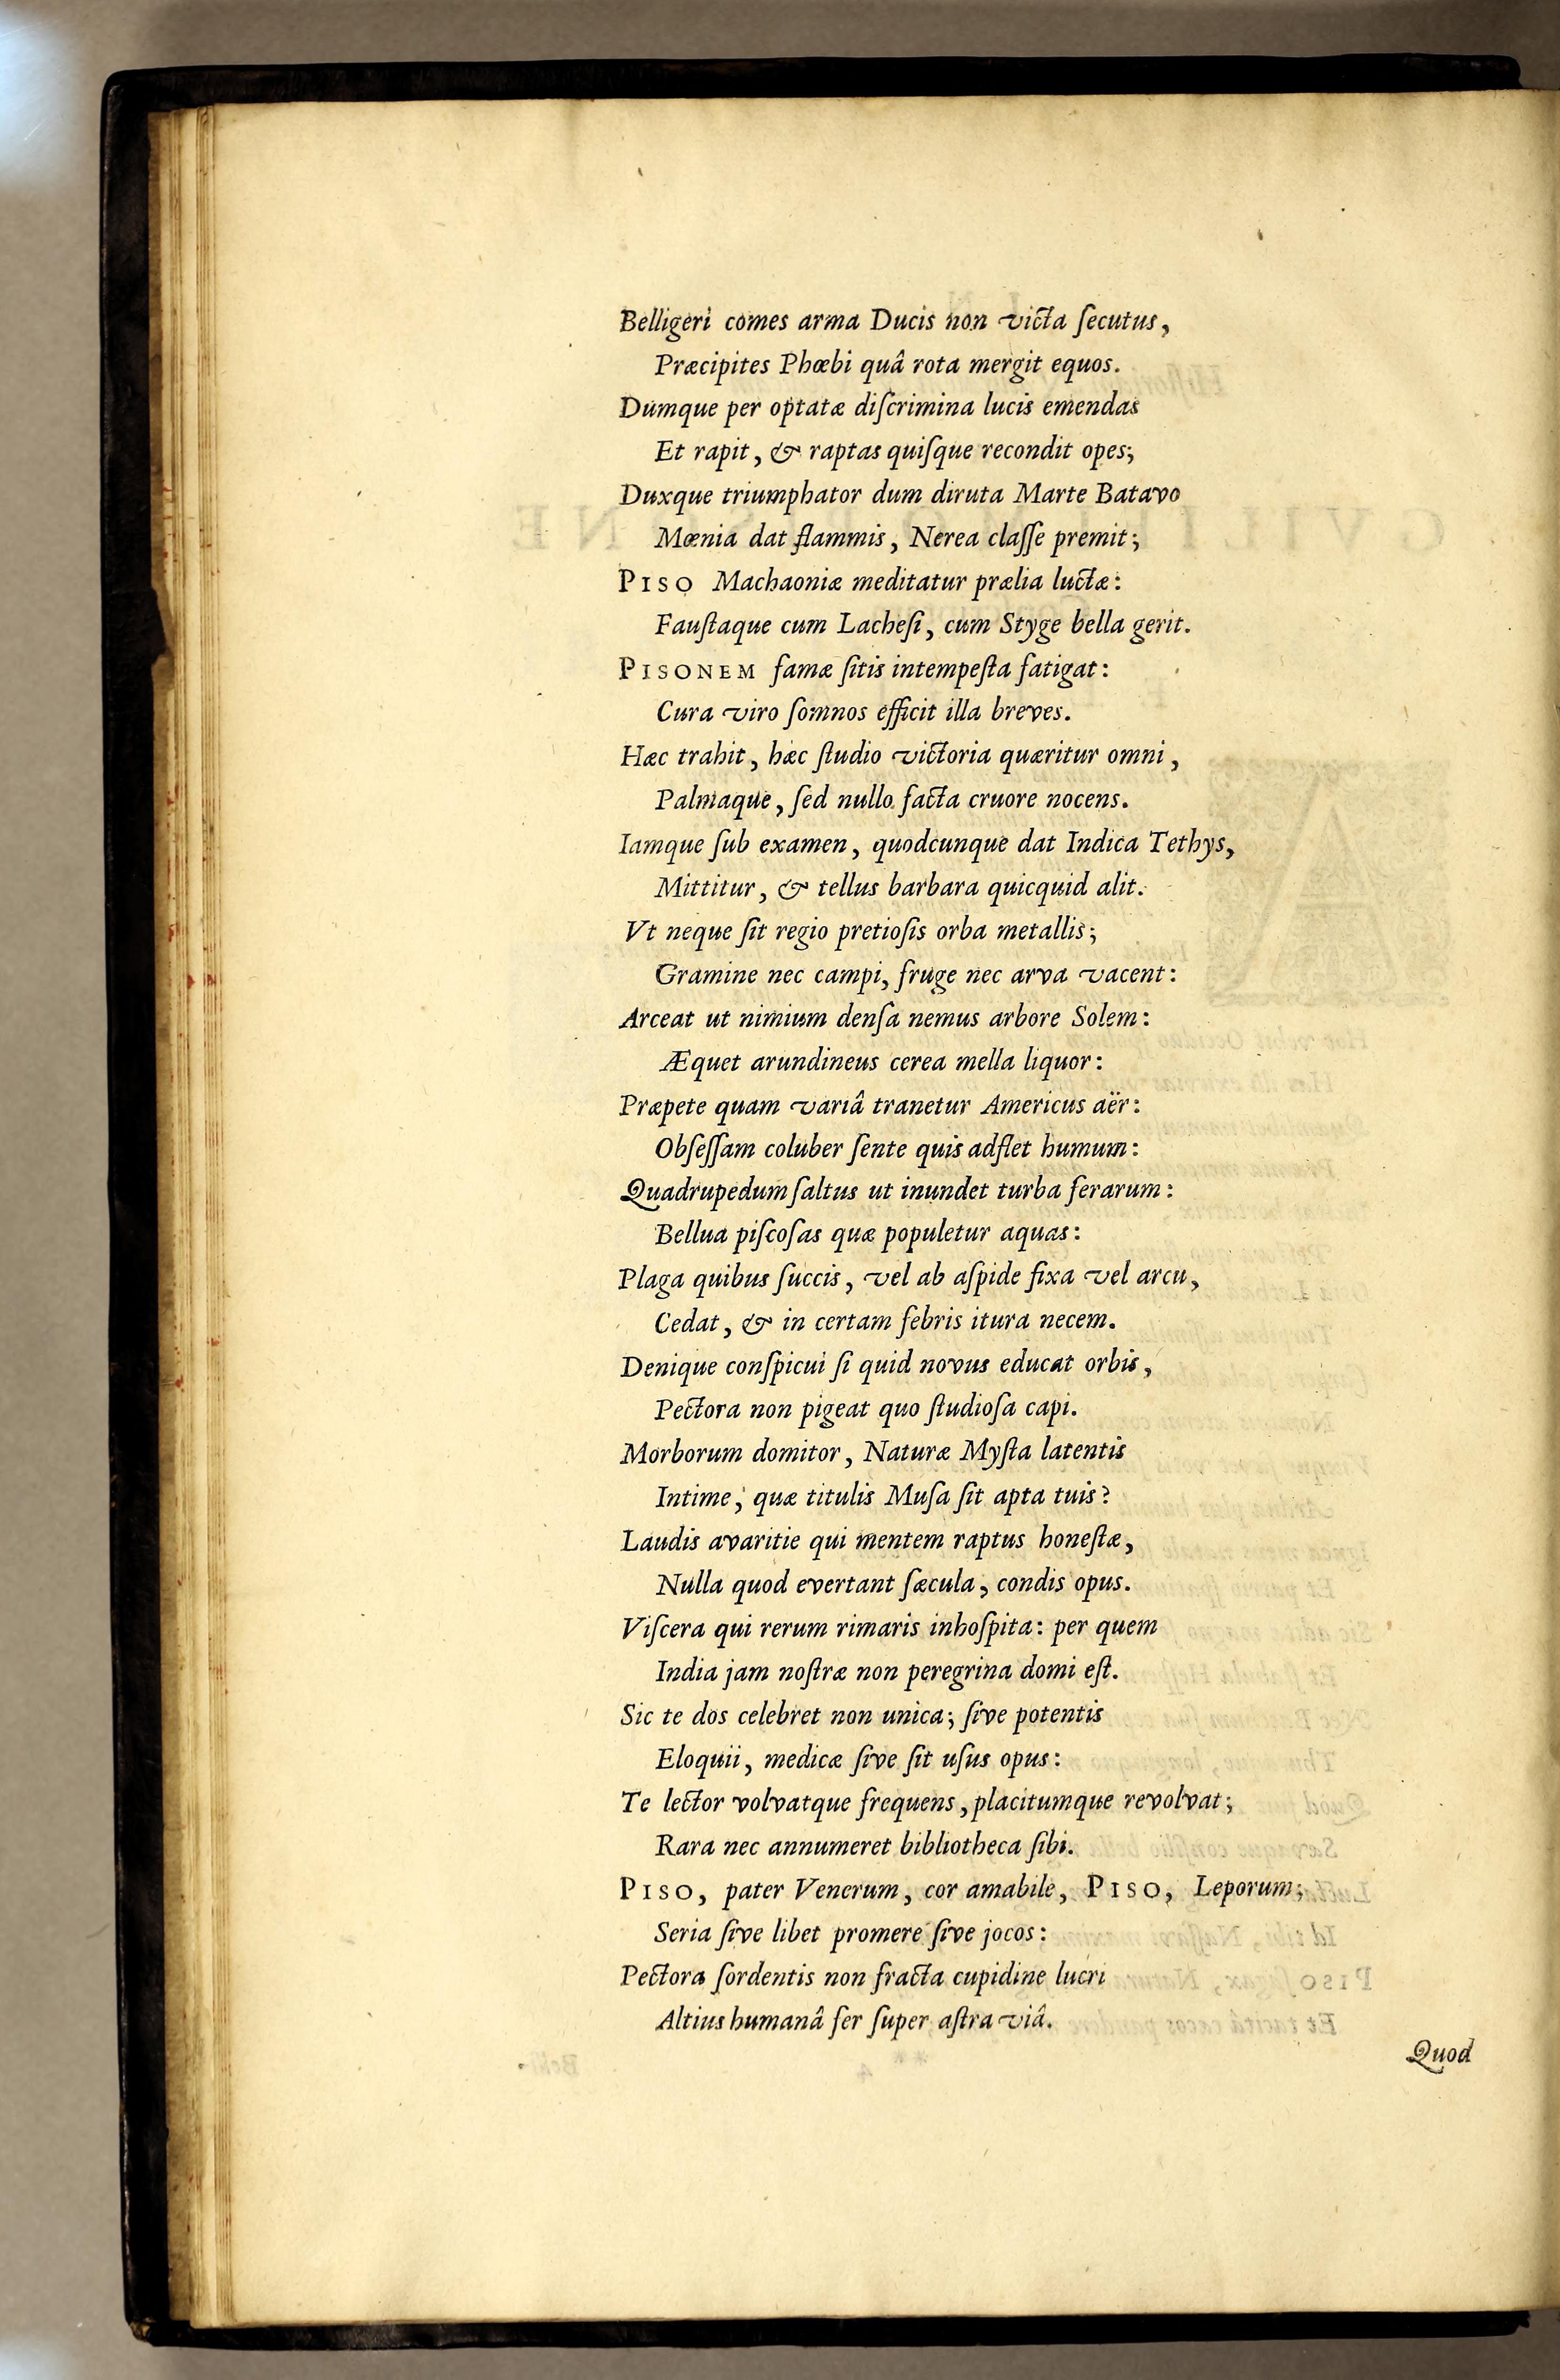 Belligeri comes arma Ducis non victa ſecutus,
Præcipites Phœbi quâ rota mergit equos.
Dumque per optatæ diſcrimina lucis emendas
Et rapit, & raptas quiſque recondit opes;
Duxque triumphator dum diruta Marte Batavo
Mœnia dat flammis, Nerea claſſe premit;
PISO Machaoniæ meditatur prælia luctæ:
Fauſtaque cum Lacheſi, cum Styge bella gerit.
PISONEM famæ ſitis intempeſta fatigat:
Cura viro ſomnos efficit illa breves.
Hæc trahit, hæc ſtudio victoria quæritur omni,
Palmaque, ſed nullo facta cruore nocens.
Iamque ſub examen, quodcunque dat Indica Tethys,
Mittitur, & tellus barbara quicquid alit.
Vt neque ſit regio pretioſis orba metallis;
Gramine nec campi, fruge nec arva vacent:
Arceat ut nimium denſa nemus arbore Solem:
Æquet arundineus cerea mella liquor:
Præpete quam variâ tranetur Americus aër:
Obſeſſam coluber ſente quis adflet humum:
Quadrupedum ſaltus ut inundet turba ferarum:
Bellua piſcoſas quæ populetur aquas:
Plaga quibus ſuccis, vel ab aſpide fixa vel arcu,
Cedat, & in certam febris itura necem.
Denique conſpicui ſi quid novus educat orbis,
Pectora non pigeat quo ſtudioſa capi.
Morborum domitor, Naturæ Myſta latentis
Intime, quæ titulis Muſa ſit apta tuis?
Laudis avaritie qui mentem raptus honeſtæ,
Nulla quod evertant ſæcula, condis opus.
Viſcera qui rerum rimaris inhoſpita: per quem
India jam noſtræ non peregrina domi eſt.
Sic te dos celebret non unica; ſive potentis
Eloquii, medicæ ſive ſit uſus opus:
Te lector volvatque frequens, placitumque revolvat;
Rara nec annumeret bibliotheca ſibi.
PISO, pater Venerum, cor amabile, PISO, Leporum;
Seria ſive libet promere ſive jocos:
Pectora ſordentis non fracta cupidine lucri
Altius humanâ fer ſuper aſtra viâ.
Quod